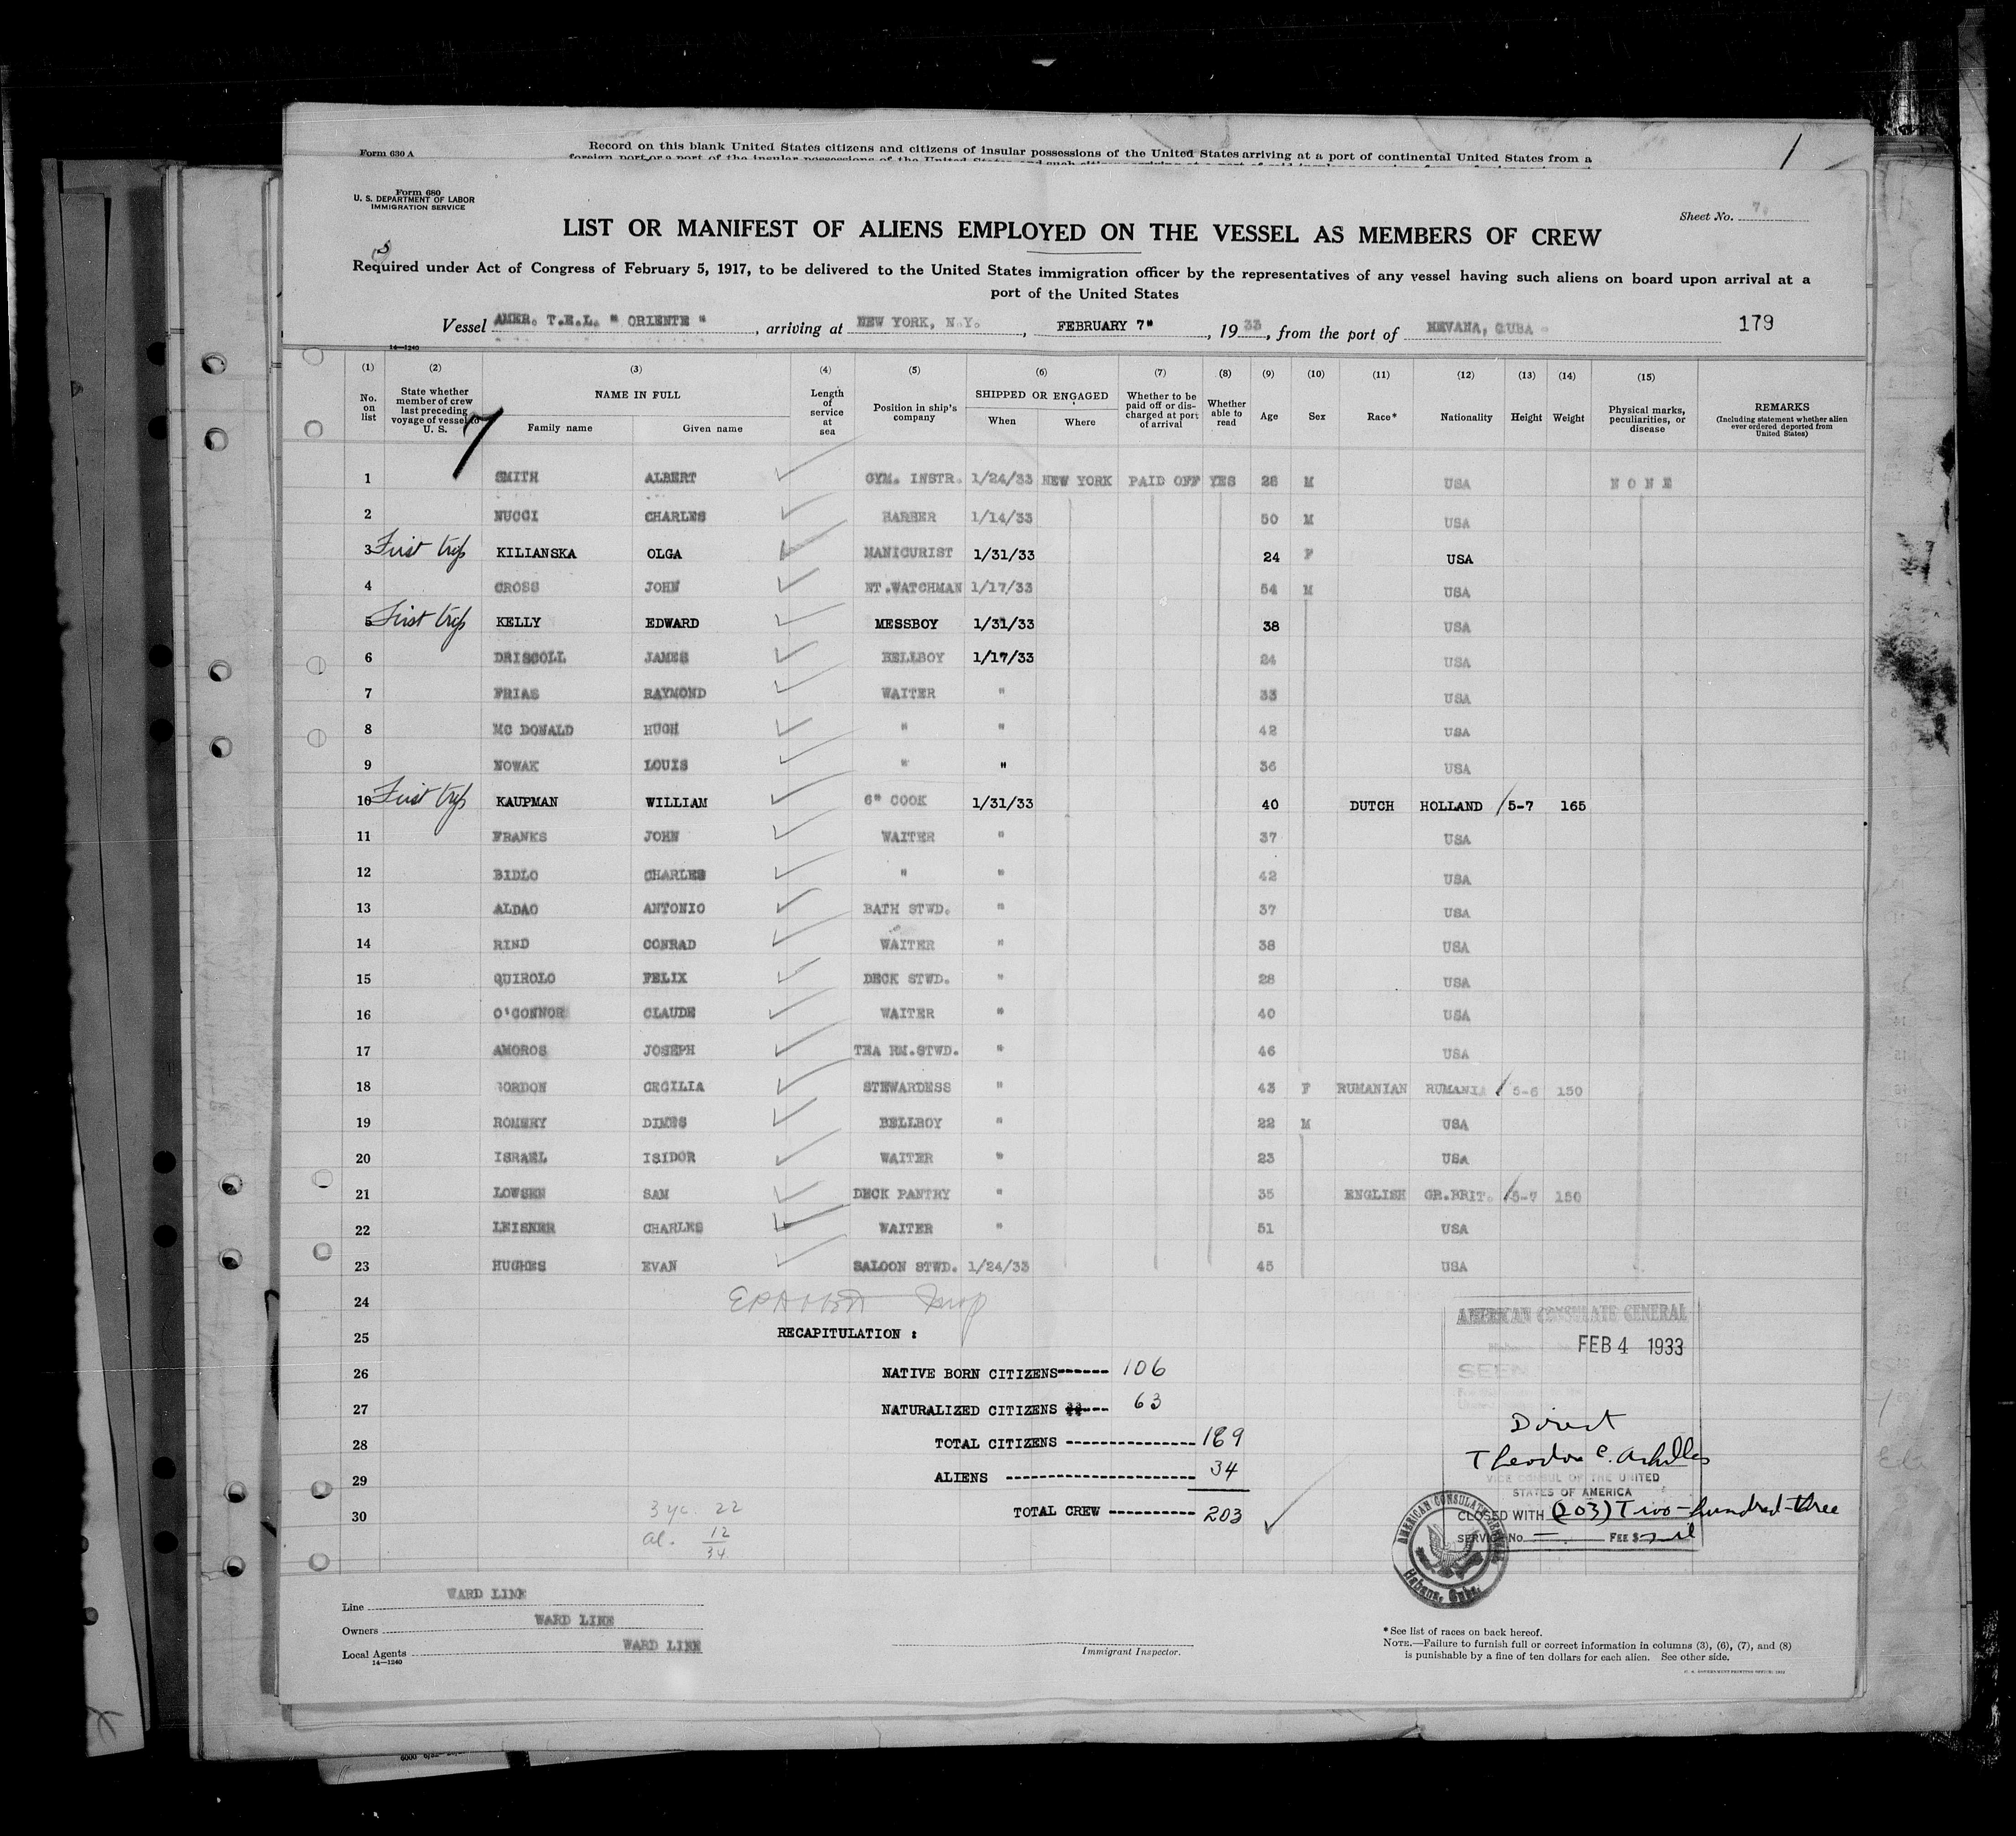 Form 630 A
Record on this blank United States citizens and citizens of insular possessions of the United States arriving at a port of continental United States from a
1
Form 680
U. S. DEPARTMENT OF LABOR
IMMIGRATION SERVICE
Sheet No. 7.
LIST OR MANIFEST OF ALIENS EMPLOYED ON THE VESSEL AS MEMBERS OF CREW
Required under Act of Congress of February 5, 1917, to be delivered to the United States immigration officer by the representatives of any vessel having such aliens on board upon arrival at a
port of the United States
Vessel AMER. T.E.L. " ORIENTE " , arriving at NEW YORK, N.Y. , FEBRUARY 7" , 1933, from the port of HEVANA, CUBA 179
14—1240
(1) (2) (3) (4) (5) (6) (7) (8) (9) (10) (11) (12) (13) (14) (15)
No. on list State whether member of crew last preceding voyage of vessel to U. S. NAME IN FULL Family name Given name Length of service at sea Position in ship's company SHIPPED OR ENGAGED When Where Whether to be paid off or discharged at port of arrival Whether able to read Age Sex Race* Nationality Height Weight Physical marks, peculiarities, or disease REMARKS (Including statement whether alien ever ordered deported from United States)
7
1 SMITH ALBERT GYM. INSTR. 1/24/33 NEW YORK PAID OFF YES 28 M USA NONE
2 NUCCI CHARLES BARBER 1/14/33 50 M USA
3 First trip KILIANSKA OLGA MANICURIST 1/31/33 24 F USA
4 CROSS JOHN NT.WATCHMAN 1/17/33 54 M USA
5 First trip KELLY EDWARD MESSBOY 1/31/33 38 USA
6 DRISCOLL JAMES BELLBOY 1/17/33 24 USA
7 FRIAS RAYMOND WAITER " 33 USA
8 MC DONALD HUGH " " 42 USA
9 NOWAK LOUIS " " 36 USA
10 First trip KAUPMAN WILLIAM 6" COOK 1/31/33 40 DUTCH HOLLAND 5-7 165
11 FRANKS JOHN WAITER " 37 USA
12 BIDLO CHARLES " " 42 USA
13 ALDAO ANTONIO BATH STWD. " 37 USA
14 RIND CONRAD WAITER " 38 USA
15 QUIROLO FELIX DECK STWD. " 28 USA
16 O'CONNOR CLAUDE WAITER " 40 USA
17 AMOROS JOSEPH TEA RM.STWD. " 46 USA
18 GORDON CECILIA STEWARDESS " 43 F RUMANIAN RUMANIA 5-6 150
19 ROMERY DIMES BELLBOY " 22 M USA
20 ISRAEL ISIDOR WAITER " 23 USA
21 LOWSEN SAM DECK PANTRY " 35 ENGLISH GR.BRIT. 5-7 150
22 LEISNER CHARLES WAITER " 51 USA
23 HUGHES EVAN SALOON STWD. 1/24/33 45 USA
24
25 RECAPITULATION :
26 NATIVE BORN CITIZENS------ 106
27 NATURALIZED CITIZENS ---- 63
28 TOTAL CITIZENS --------------- 169
29 ALIENS ---------------------- 34
30 TOTAL CREW ---------- 203
22
al. 12
34
AMERICAN CONSULATE GENERAL
FEB 4 1933
SEEN
Direct
Theodore C. Achilles
VICE CONSUL OF THE UNITED
STATES OF AMERICA
CLOSED WITH (203) Two-hundred-three
SERVICE No. — FEE $ nil
AMERICAN CONSULATE GENERAL
Habana, Cuba.
Line WARD LINE
Owners WARD LINE
Local Agents WARD LINE
14—1240
Immigrant Inspector.
*See list of races on back hereof.
NOTE.—Failure to furnish full or correct information in columns (3), (6), (7), and (8)
is punishable by a fine of ten dollars for each alien. See other side.
U. S. GOVERNMENT PRINTING OFFICE: 1932